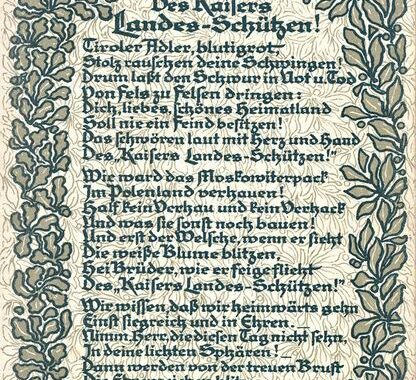 Des Kaisers
Landes-Schützen!
Tiroler Adler, blutigrot,
Stolz rauschen deine Schwingen!
Drum laßt den Schwur in Not u. Tod
Von Fels zu Felsen dringen:
Dich, liebes, schönes Heimatland
Soll nie ein Feind besitzen!
Das schwören laut mit Herz und Hand
Des „Kaisers Landes-Schützen!"
Wie ward das Moskowiterpack
Im Polenland verhauen!
Half kein Verhau und kein Verhack
Und was sie sonst noch bauen!
Und erst der Welsche, wenn er sieht
Die weiße Blume blitzen,
Hei Brüder, wie er feige flieht
Des „Kaisers Landes-Schützen!"
Wir wissen, daß wir heimwärts gehn
Einst siegreich und in Ehren.
Nimm Herr, die diesen Tag nicht sehn,
In deine lichten Sphären!
Dann werden von der treuen Brust